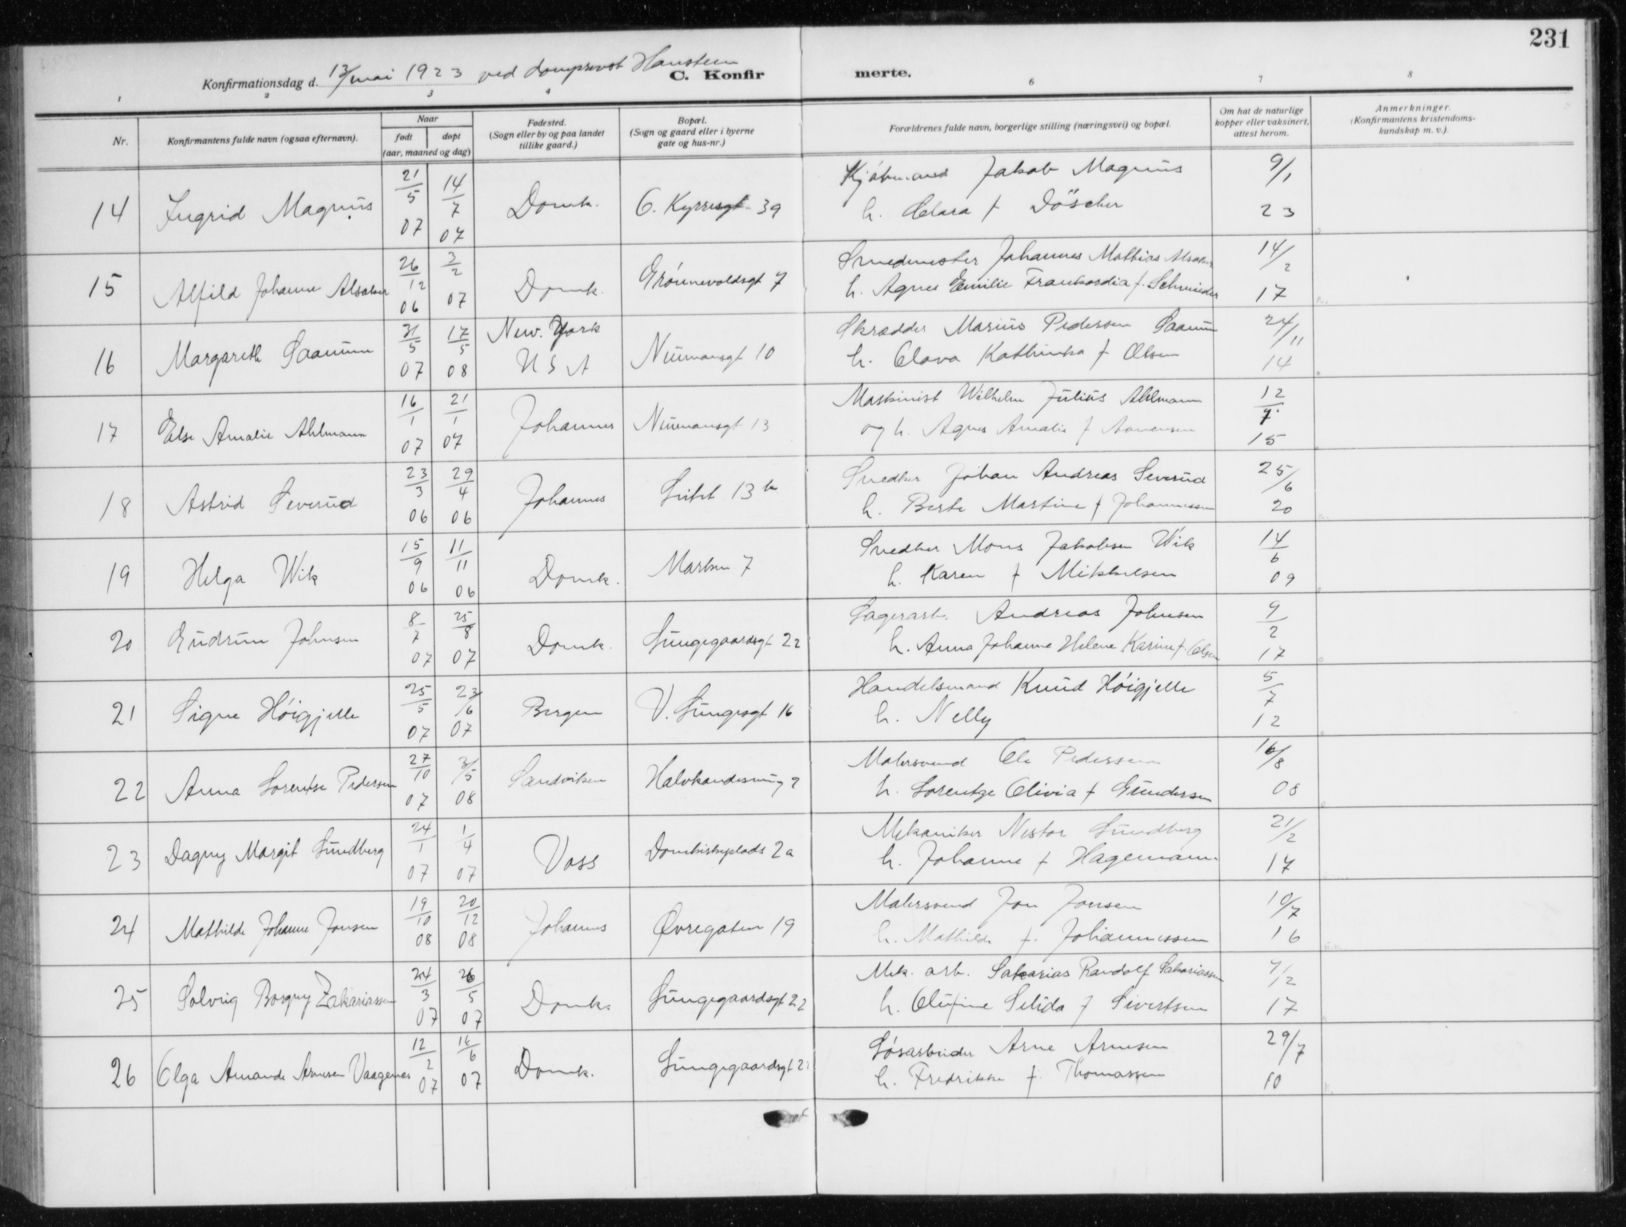 231
Konfirmationsdag d. 13/mai 1923 ved domprovst Hansteen
C. Konfirmerte.
1 2 3 4 6 7 8
Nr.
Konfirmantens fulde navn (ogsaa efternavn).
Naar
født
døpt
(aar, maaned og dag)
Fødested.
(Sogn eller by og paa landet
tillike gaard.)
Bopæl.
(Sogn og gaard eller i byerne
gate og hus-nr.)
Forældrenes fulde navn, borgerlige stilling (næringsvei) og bopæl.
Om hat de naturlige
kopper eller vaksinert,
attest herom.
Anmerkninger.
(Konfirmantens kristendoms-
kundskap m. v.).
14 Ingrid Magnus 21/5 07 14/7 07 Domk. O. Kyrresgt 39 Kjøbmand Jakob Magnus 9/1
h. Clara f Döscher 23
15 Alfild Johanne 26/12 06 3/2 07 Domk. Grønnevoldsgt 7 Smedmester Johannes Mathias 14/2
h. Agnes Emilie f. Schneider 17
16 Margareth Saanum 21/5 07 17/5 08 New. York Nimansgt 10 Skrædder Marius Pedersen Saanum 24/11
U S A h. Olava Kathinka f Olsen 14
17 Else Amalie Ahlmann 16/1 07 21/1 07 Johannes Nimansgt 13 Maskinist Wilhelm Julius Ahlmann 12/7
og h. Agnes Amalie f 15
18 Astrid Severud 23/3 06 29/4 06 Johannes 13 b Snedker Johan Andreas Severud 25/6
h. Berte Martine f Johannessen 20
19 Helga Wik 15/9 06 11/11 06 Domk. Marken 7 Snedker Mons Jakobsen Wik 14/6
h. Karen f Mikkelsen 09
20 Gudrun Johnsen 8/7 07 25/8 07 Domk. Lungegaardsgt 22 Lagerarb. Andreas Johnsen 9/2
h. Anna Johanne Helene Karine f. Olsen 17
21 Signe Høigjelle 25/5 07 23/6 07 Bergen V. Lungesgt 16 Handelsmand Knud Høigjelle 5/7
h. Nelly 12
22 Anna Lorentse Pedersen 27/10 07 31/5 08 Sandviken Halvkandesmug 2 Malersvend Ole Pedersen 16/8
h. Lorentze Olivia f Gundersen 08
23 Dagny Margit Lundberg 24/1 07 1/4 07 Voss Domkirkeplads 2a Mekaniker Nestor Lundberg 21/2
h. Johanne f Hagemann 17
24 Mathilde Johanne Jonsen 19/10 08 20/12 08 Johannes Øvregaten 19 Malersvend Jon Jonsen 10/7
h. Mathilde f. Johannessen 16
25 Solveig Borgny Zakariassen 24/3 07 26/5 07 Domk. Lungegaardsgt 22 Mek. arb. Sakarias Randolf Sakariassen 7/2
h. Olufine Selida f Sivertsen 17
26 Olga Amanda Arnesen Vaagenes 12/2 07 16/6 07 Domk. Lungegaardsgt 21 Løsarbeider Arne Arnesen 29/7
h. Fredrikke f. Thomassen 10